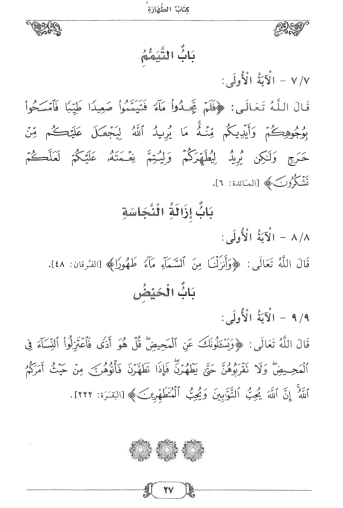 كِتَابُ الطَّهَارَةِ
بَابُ التَّيَمُّمِ
٧/٧ - الْآيَةُ الْأُولَى:
قَالَ اللَّهُ تَعَالَى: ﴿فَلَمْ تَجِدُوا۟ مَآءً فَتَيَمَّمُوا۟ صَعِيدًا طَيِّبًا فَٱمْسَحُوا۟
بِوُجُوهِكُمْ وَأَيْدِيكُم مِّنْهُ ۚ مَا يُرِيدُ ٱللَّهُ لِيَجْعَلَ عَلَيْكُم مِّنْ
حَرَجٍ وَلَٰكِن يُرِيدُ لِيُطَهِّرَكُمْ وَلِيُتِمَّ نِعْمَتَهُۥ عَلَيْكُمْ لَعَلَّكُمْ
تَشْكُرُونَ﴾ [المائدة: ٦].
بَابُ إِزَالَةِ النَّجَاسَةِ
٨/٨ - الْآيَةُ الْأُولَى:
قَالَ اللَّهُ تَعَالَى: ﴿وَأَنزَلْنَا مِنَ ٱلسَّمَآءِ مَآءً طَهُورًا﴾ [الفُرقان: ٤٨].
بَابُ الْحَيْضِ
٩/٩ - الْآيَةُ الْأُولَى:
قَالَ اللَّهُ تَعَالَى: ﴿وَيَسْـَٔلُونَكَ عَنِ ٱلْمَحِيضِ ۖ قُلْ هُوَ أَذًى فَٱعْتَزِلُوا۟ ٱلنِّسَآءَ فِى
ٱلْمَحِيضِ ۖ وَلَا تَقْرَبُوهُنَّ حَتَّىٰ يَطْهُرْنَ ۖ فَإِذَا تَطَهَّرْنَ فَأْتُوهُنَّ مِنْ حَيْثُ أَمَرَكُمُ
ٱللَّهُ ۚ إِنَّ ٱللَّهَ يُحِبُّ ٱلتَّوَّٰبِينَ وَيُحِبُّ ٱلْمُتَطَهِّرِينَ﴾ [البَقَرَة: ٢٢٢].
٢٧